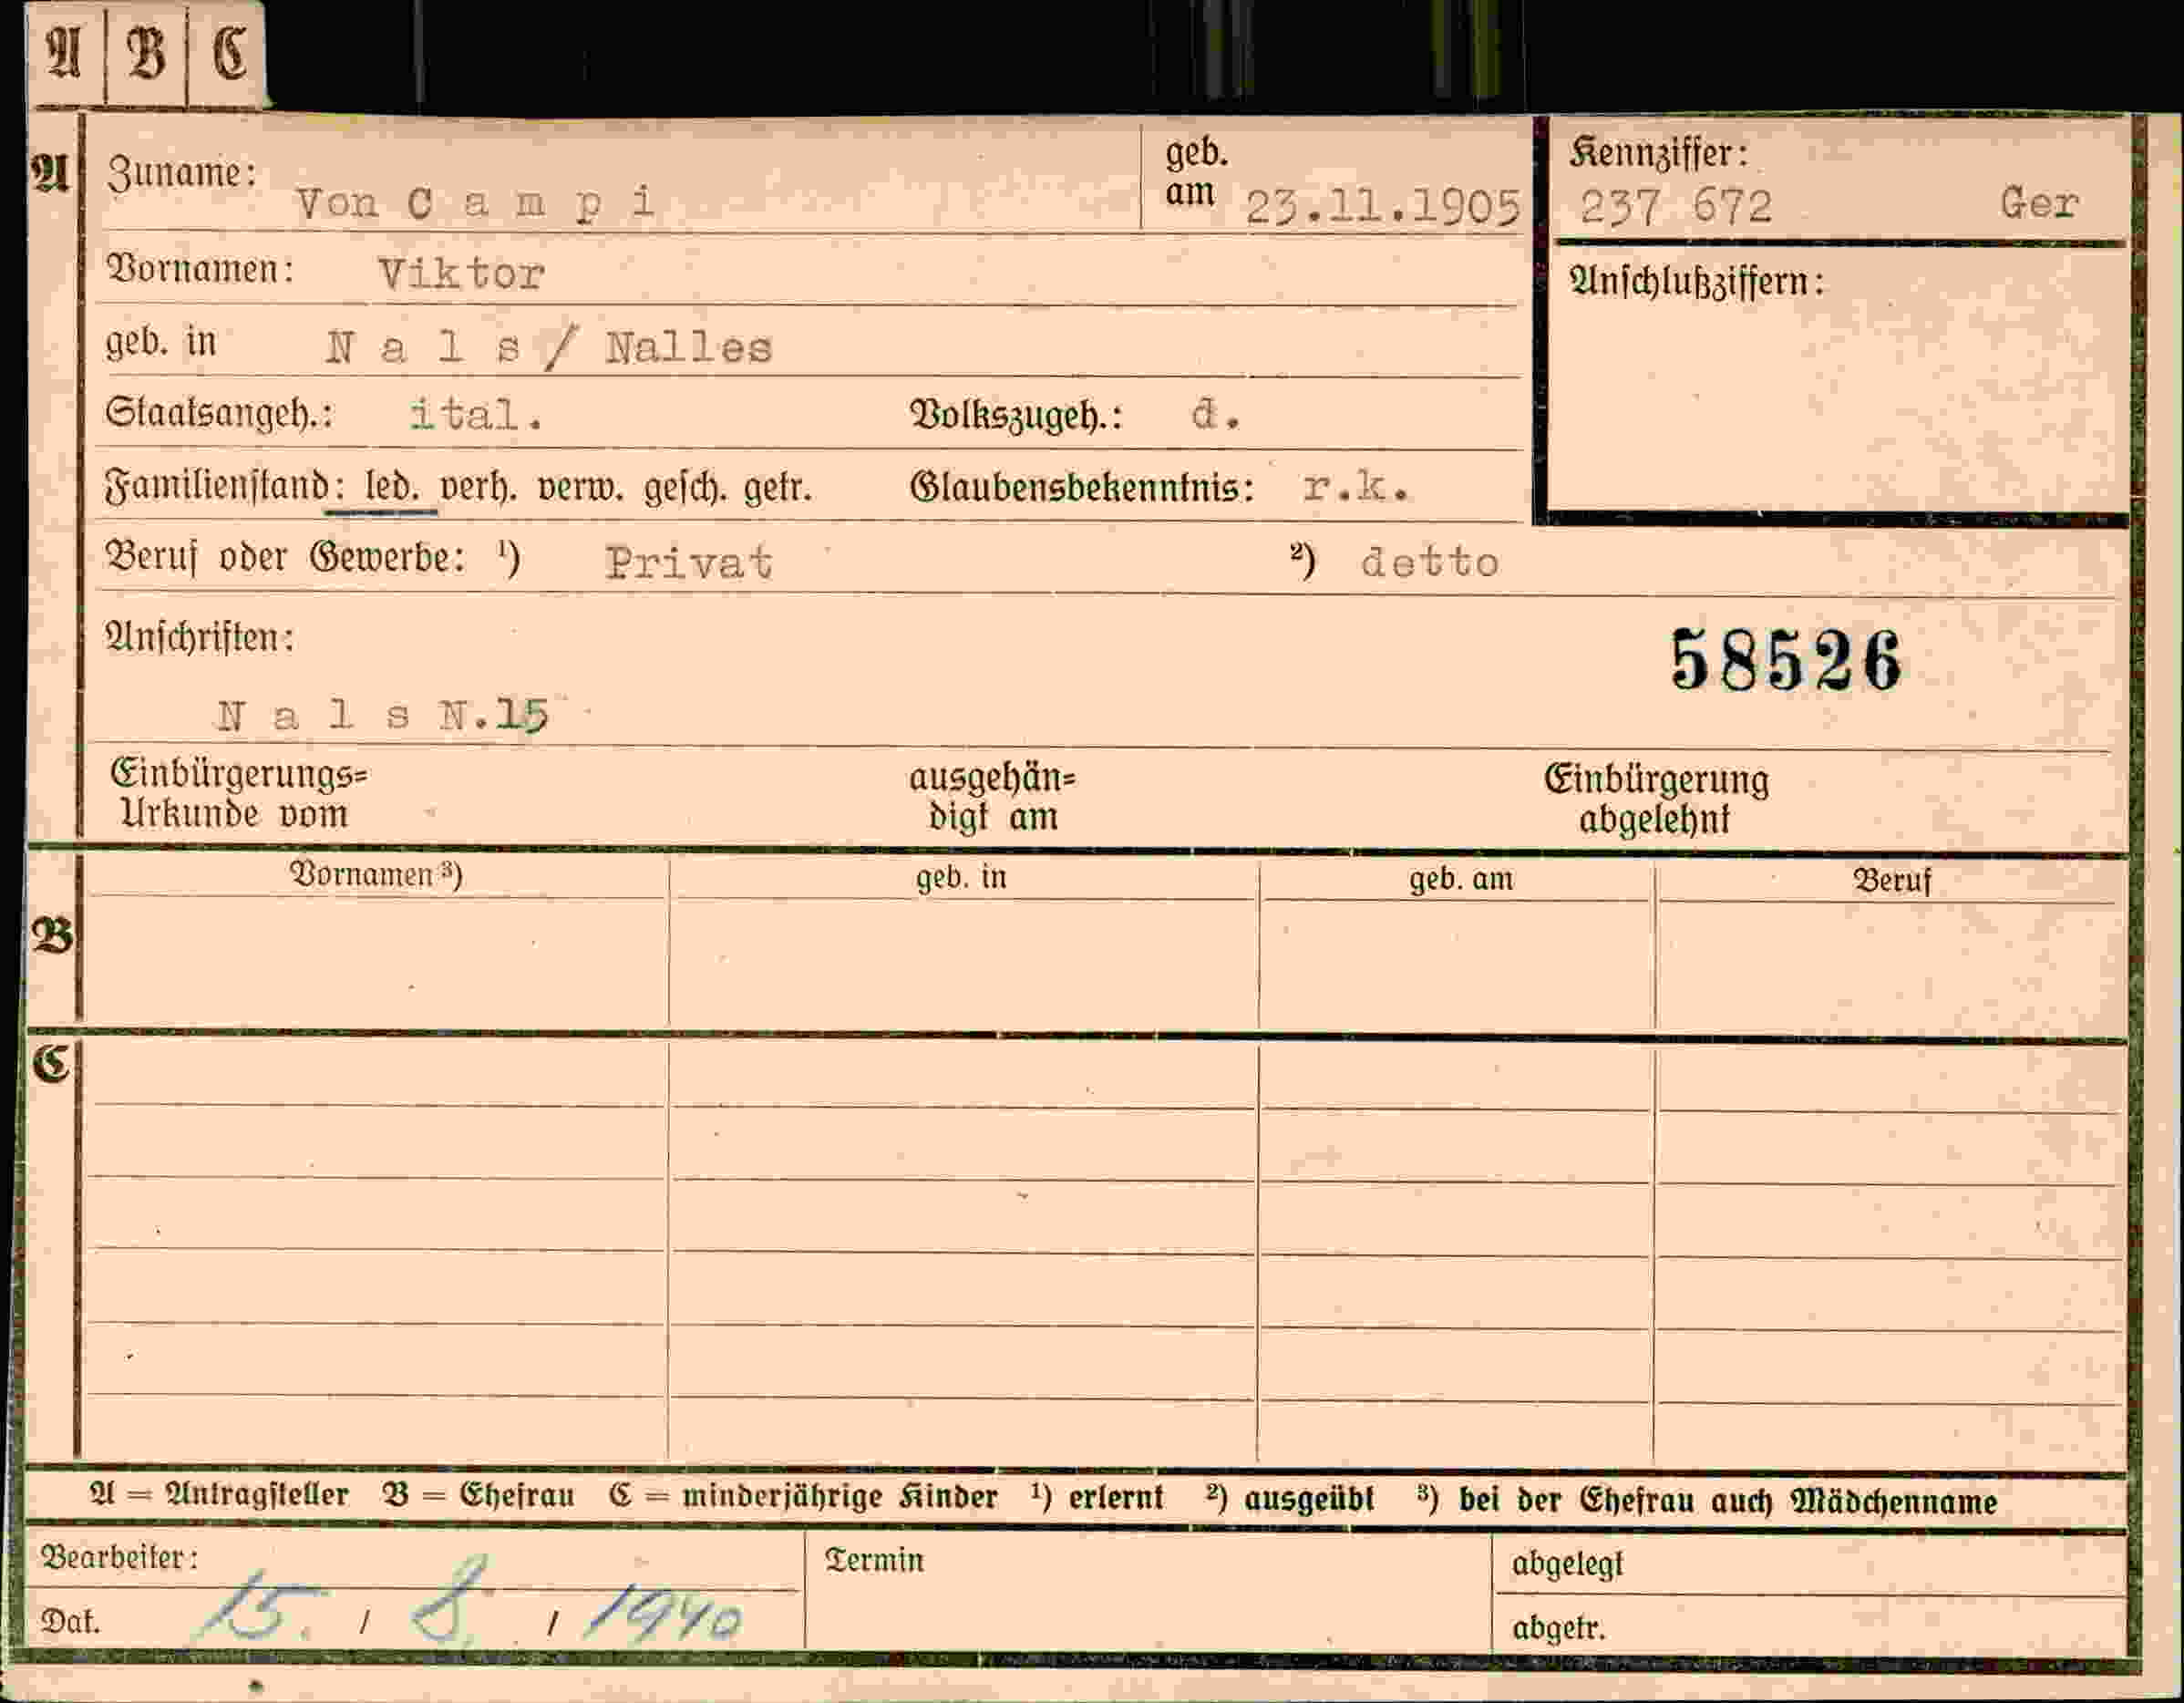 A B C
A Zuname: Von C a m p i geb. am 23.11.1905 Kennziffer: 237 672 Ger
Vornamen: Viktor Anschlußziffern:
geb. in N a l s / Nalles
Staatsangeh.: ital. Volkszugeh.: d.
Familienstand: led. verh. verw. gesch. getr. Glaubensbekenntnis: r.k.
Beruf oder Gewerbe: ¹) Privat ²) detto
Anschriften: 58526
N a l s N.15
Einbürgerungs= ausgehän= Einbürgerung
Urkunde vom digt am abgelehnt
Vornamen ³) geb. in geb. am Beruf
B
C
A = Antragsteller B = Ehefrau C = minderjährige Kinder ¹) erlernt ²) ausgeübt ³) bei der Ehefrau auch Mädchenname
Bearbeiter: Termin abgelegt
Dat. 15. / 8. / 1940 abgetr.